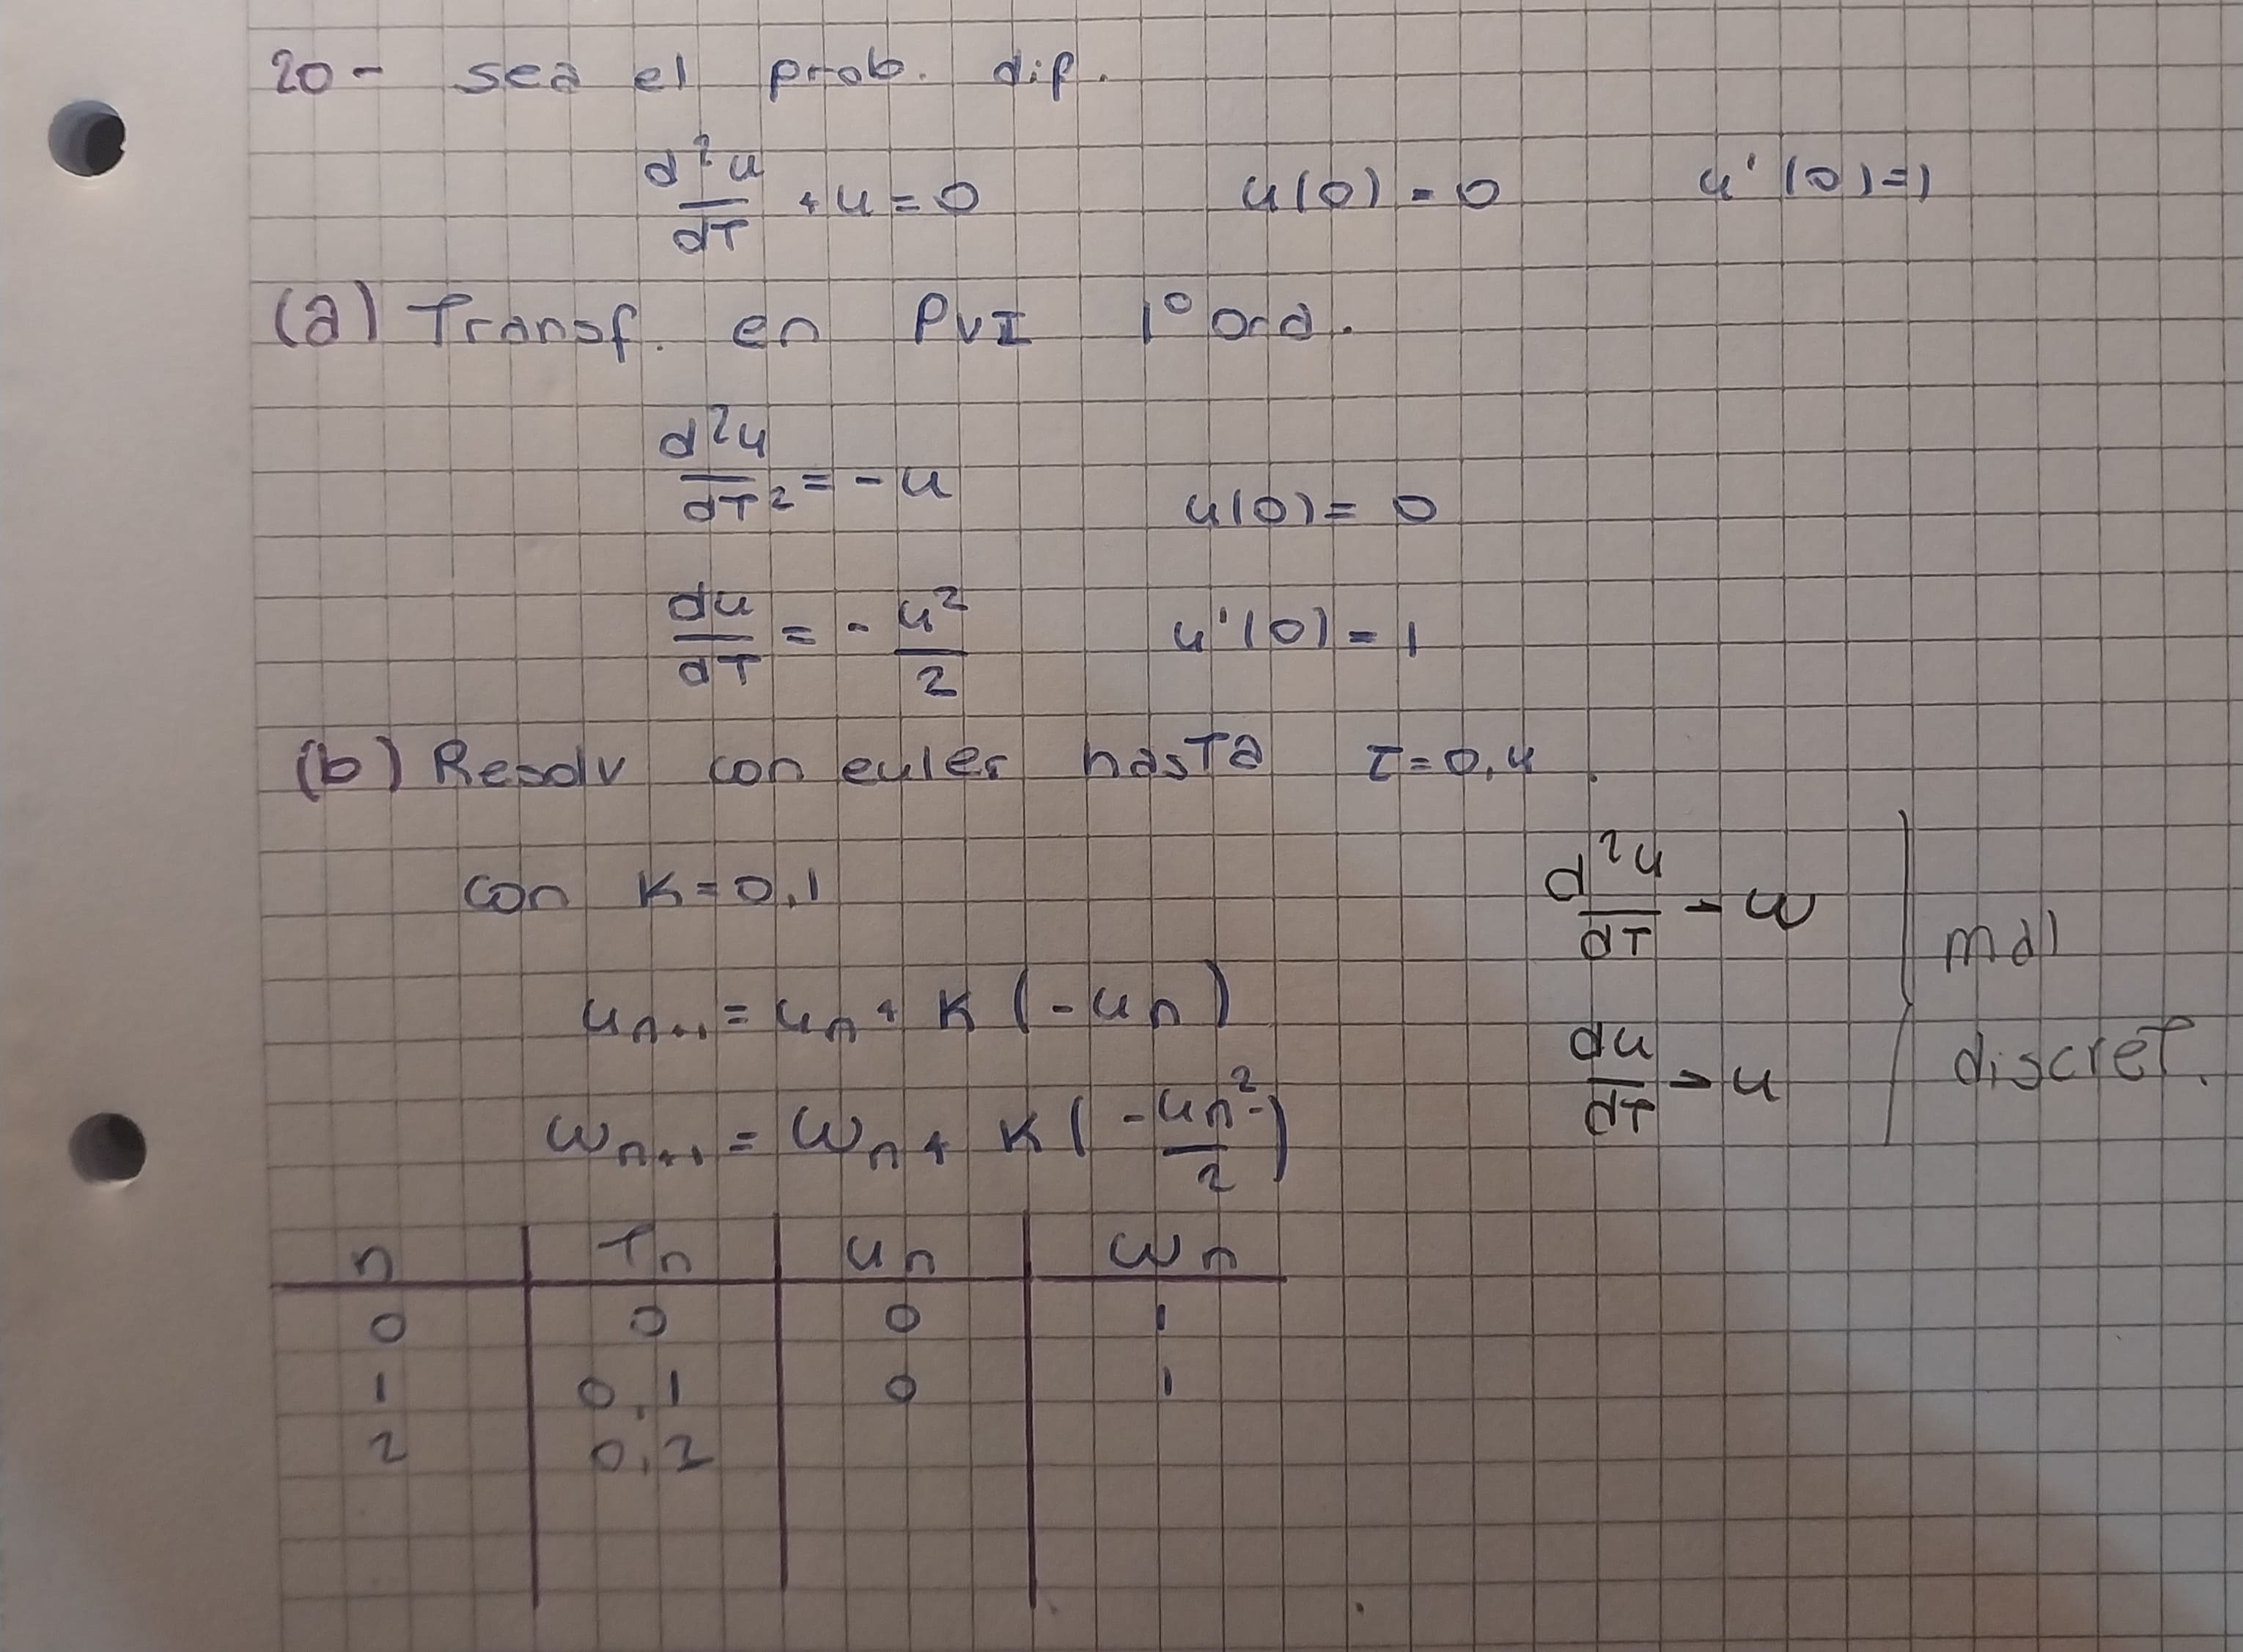 20- sea el prob. dif.
d²u/dT + u = 0 u(0) = 0 u'(0)=1
(a) Transf. en PVI 1° Ord.
d²u/dT² = -u u(0) = 0
du/dT = - u²/2 u'(0) = 1
(b) Resolv con euler hasta T=0,4.
con K=0,1
d²u/dT → w
mal
uₙ₊₁ = uₙ + K (-uₙ)
du/dT → u
discret.
wₙ₊₁ = wₙ + K (-uₙ²/2)
n Tₙ uₙ wₙ
0 0 0 1
1 0,1 0 1
2 0,2